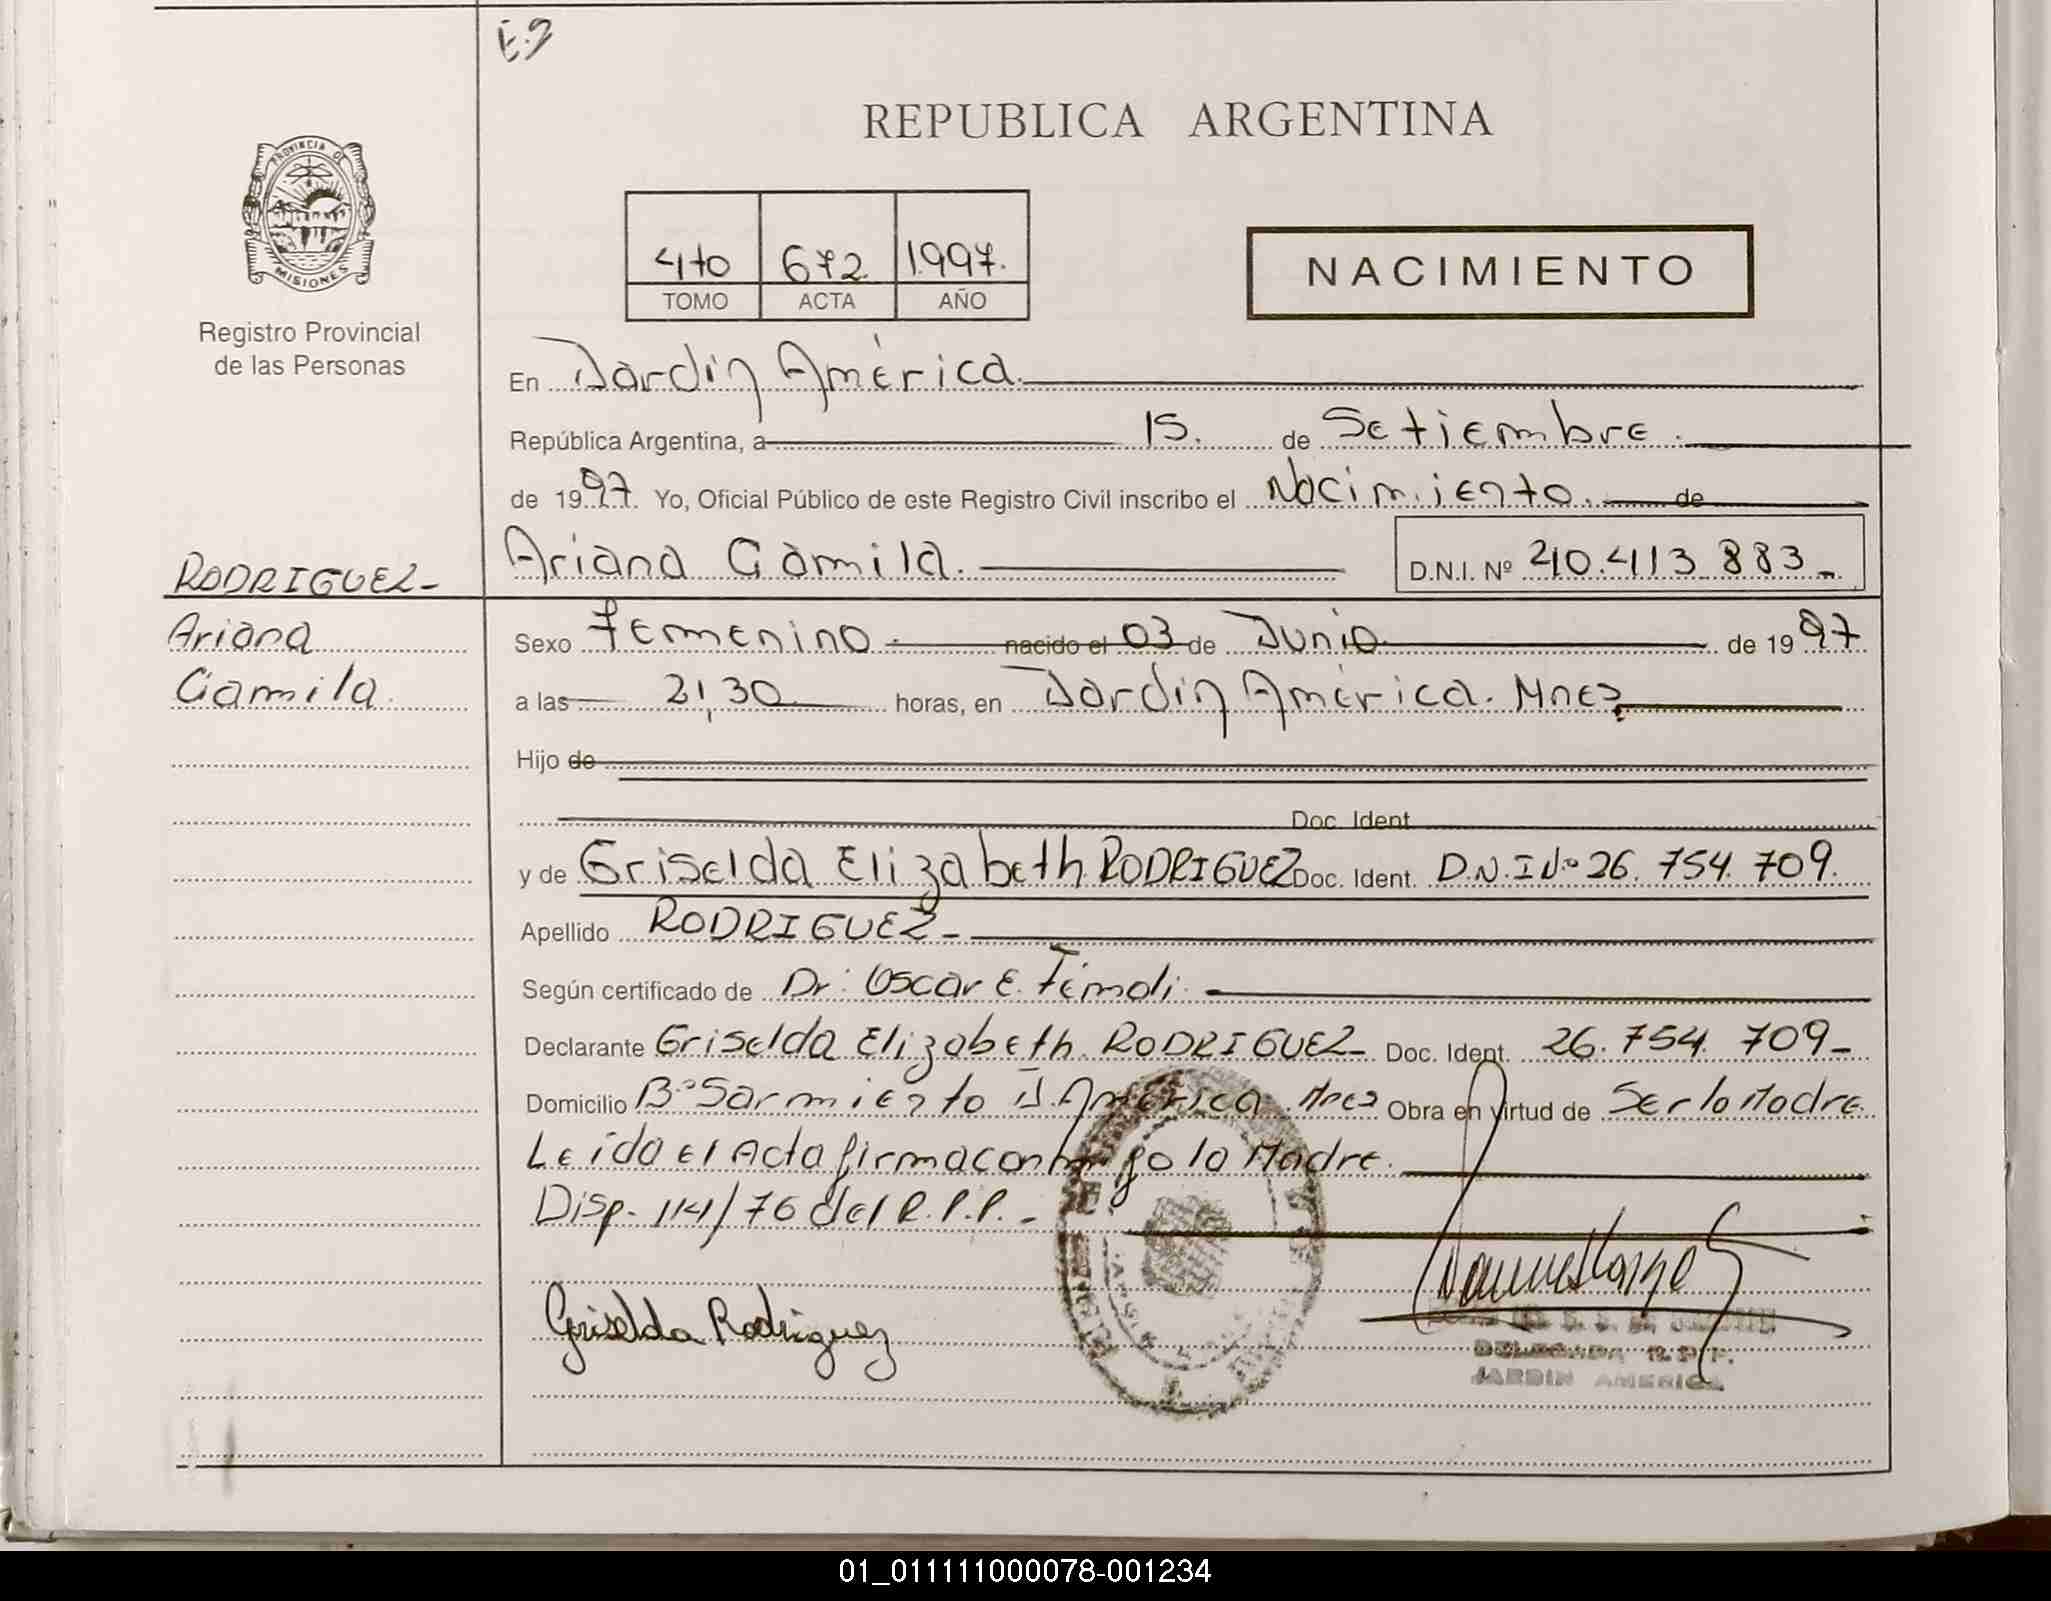 E.9
REPUBLICA ARGENTINA
PROVINCIA DE
MISIONES
4to 672 1.997.
TOMO ACTA AÑO
NACIMIENTO
Registro Provincial
de las Personas
En Jardín América.
República Argentina, a 15. de Setiembre.
de 1997. Yo, Oficial Público de este Registro Civil inscribo el Nacimiento. de
RODRIGUEZ- Ariana Camila. D.N.I. Nº 40.413.883-
Ariana Sexo Femenino nacido el 03 de Junio de 1997
Camila. a las 21,30 horas, en Jardín América. Mnes
Hijo de
Doc. Ident
y de Griselda Elizabeth RODRIGUEZ Doc. Ident. D.N.I Nº 26.754.709.
Apellido RODRIGUEZ-
Según certificado de Dr: Oscar E.
Declarante Griselda Elizabeth RODRIGUEZ- Doc. Ident. 26.754.709-
Domicilio Bº Sarmiento J. América. Mnes Obra en virtud de Ser la Madre
Leida el Acta firma conmigo la Madre.
Disp. 114/76 del R.P.P.-
Griselda Rodriguez
DELEGADA R.P.P.
JARDIN AMERICA
01_011111000078-001234